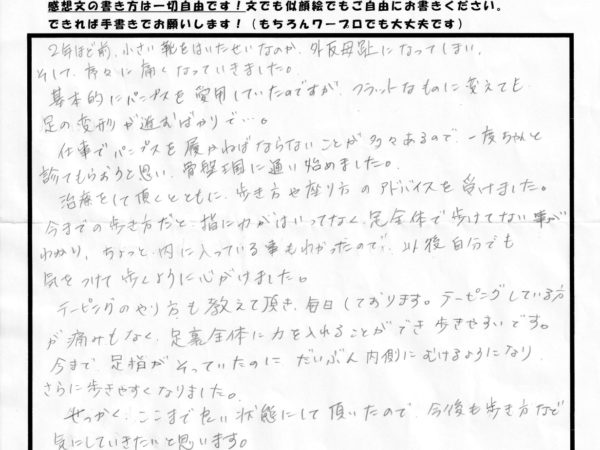 感想文の書き方は一切自由です！文でも似顔絵でもご自由にお書きください。
できれば手書きでお願いします！（もちろんワープロでも大丈夫です）
2年ほど前、小さい靴をはいたせいなのか、外反母趾になってしまい、
そして、序々に痛くなっていきました。
基本的にパンプスを愛用していたのですが、フラットなものに変えても
足の変形が進むばかりで…。
仕事でパンプスを履かねばならないことが多々あるので、一度ちゃんと
診てもらおうと思い、骨盤王国に通い始めました。
治療をして頂くとともに、歩き方や座り方のアドバイスを受けました。
今までの歩き方だと、指に力がはいってなく、足全体で歩けてない事が
わかり、ちょっと内に入っている事もわかったので、以後自分でも
気をつけて歩くように心がけました。
テーピングのやり方も教えて頂き、毎日しております。テーピングしている方
が痛みもなく、足裏全体に力を入れることができ歩きやすいです。
今まで、足指がそっていたのに、だいぶん内側にむけるようになり、
さらに歩きやすくなりました。
せっかく、ここまで良い状態にして頂いたので、今後も歩き方など
気にしていきたいと思います。